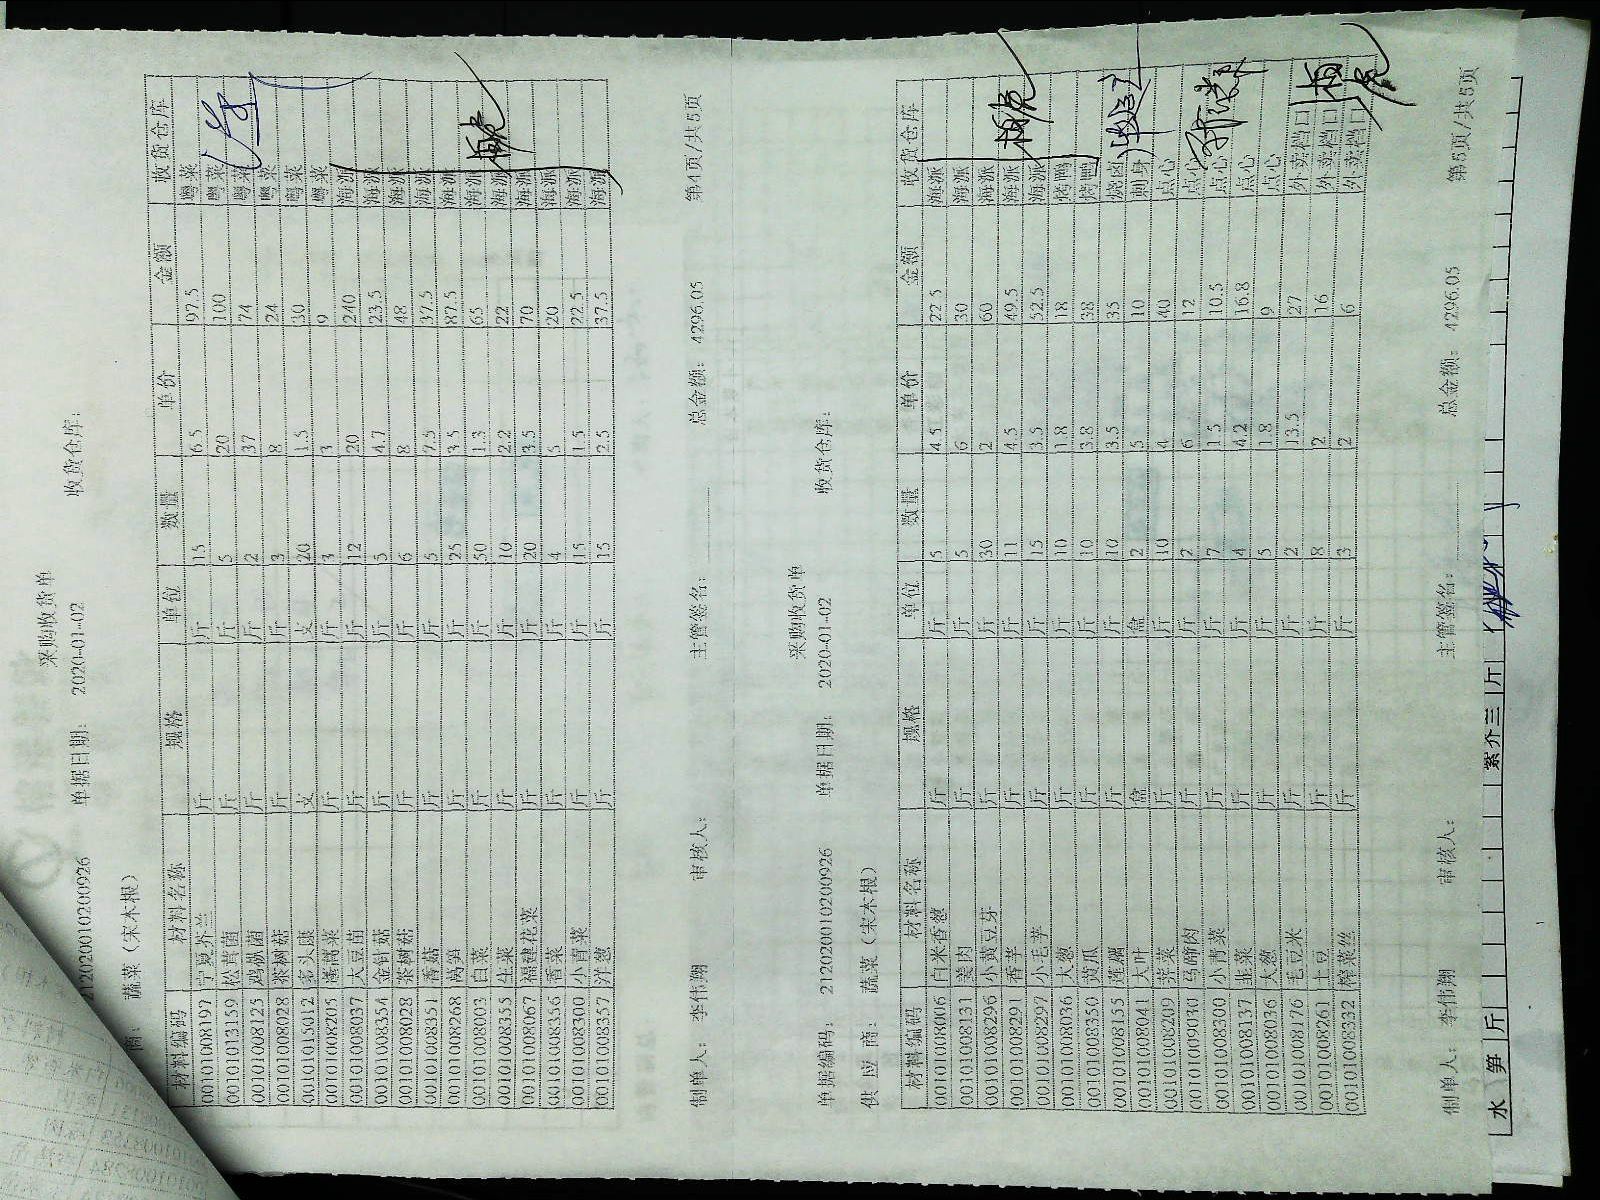 采购收货单
212020010200926 单据日期： 2020-01-02 收货仓库：
商： 蔬菜（宋木根）
材料编码 材料名称 规格 单位 数量 单价 金额 收货仓库
001010108197 宁夏芥兰 斤 斤 15 6.5 97.5 粤菜
001010113159 松茸菌 斤 斤 5 20 100 粤菜
001010108125 鸡枞菌 斤 斤 2 37 74 粤菜
001010108028 茶树菇 斤 斤 3 8 24 粤菜
001010115012 多头康 支 支 20 1.5 30 粤菜
001010108205 蓬蒿菜 斤 斤 3 3 9 粤菜
001010108037 大豆苗 斤 斤 12 20 240 海派
001010108354 金针菇 斤 斤 5 4.7 23.5 海派
001010108028 茶树菇 斤 斤 6 8 48 海派
001010108351 香菇 斤 斤 5 7.5 37.5 海派
001010108268 莴笋 斤 斤 25 3.5 87.5 海派
001010108003 白菜 斤 斤 50 1.3 65 海派
001010108355 生菜 斤 斤 10 2.2 22 海派
001010108067 福建花菜 斤 斤 20 3.5 70 海派
001010108356 香菜 斤 斤 4 5 20 海派
001010108300 小青菜 斤 斤 15 1.5 22.5 海派
001010108357 洋葱 斤 斤 15 2.5 37.5 海派
制单人： 李伟翔 审核人： 主管签名： 总金额： 4296.05 第4页/共5页
采购收货单
单据编码： 212020010200926 单据日期： 2020-01-02 收货仓库：
供 应 商： 蔬菜（宋木根）
材料编码 材料名称 规格 单位 数量 单价 金额 收货仓库
001010108006 白米香葱 斤 斤 5 4.5 22.5 海派
001010108131 姜肉 斤 斤 5 6 30 海派
001010108296 小黄豆芽 斤 斤 30 2 60 海派
001010108291 香芋 斤 斤 11 4.5 49.5 海派
001010108297 小毛芋 斤 斤 15 3.5 52.5 海派
001010108036 大葱 斤 斤 10 1.8 18 烤鸭
001010108350 黄瓜 斤 斤 10 3.8 38 烤鸭
001010108155 莲藕 斤 斤 10 3.5 35 烧卤
001010108041 大叶 盒 盒 2 5 10 刺身
001010108209 荠菜 斤 斤 10 4 40 点心
001010109030 马蹄肉 斤 斤 2 6 12 点心
001010108300 小青菜 斤 斤 7 1.5 10.5 点心
001010108137 韭菜 斤 斤 4 4.2 16.8 点心
001010108036 大葱 斤 斤 5 1.8 9 点心
001010108176 毛豆米 斤 斤 2 13.5 27 外卖档口
001010108261 土豆 斤 斤 8 2 16 外卖档口
001010108332 榨菜丝 斤 斤 3 2 6 外卖档口
制单人： 李伟翔 审核人： 主管签名： 总金额： 4296.05 第5页/共5页
水 笋 斤 紫芥兰 斤